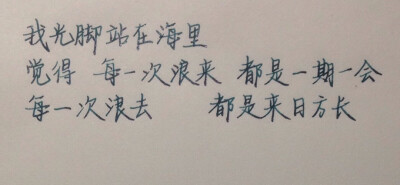 我光脚站在海里
觉得 每一次浪来 都是一期一会
每一次浪去 都是来日方长